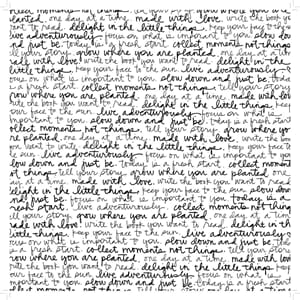 planted. one day at a time. made with love. write the book you
want to read. delight in the little things. keep your face to the sun.
live adventurously. focus on what is important to you. slow down
and just be. today is a fresh start. collect moments not things.
tell your story. grow where you are planted. one day at a time.
made with love. write the book you want to read. delight in the
little things. keep your face to the sun. live adventurously.
focus on what is important to you. slow down and just be. today
is a fresh start. collect moments not things. tell your story.
grow where you are planted. one day at a time. made with love.
write the book you want to read. delight in the little things. keep
your face to the sun. live adventurously. focus on what is
important to you. slow down and just be. today is a fresh start.
collect moments not things. tell your story. grow where you
are planted. one day at a time. made with love. write the book
you want to read. delight in the little things. keep your face to
the sun. live adventurously. focus on what is important to you.
slow down and just be. today is a fresh start. collect moments
not things. tell your story. grow where you are planted. one
day at a time. made with love. write the book you want to read.
delight in the little things. keep your face to the sun. live adventurously.
focus on what is important to you. slow down
and just be. today is a
fresh start. collect moments not things. tell your story.
grow where you are planted. one day at a time.
made with love. write the book you want to read. delight in the
little things. keep your face to the sun. live adventurously.
focus on what is important to you. slow down and just be. today
is a fresh start. collect moments not things. tell your story.
grow where you are planted. one day at a time. made with love.
write the book you want to read. delight in the little things. keep
your face to the sun. live adventurously. focus on what is
important to you. slow down and just be. today is a fresh start.
collect moments not things. tell your story. grow where